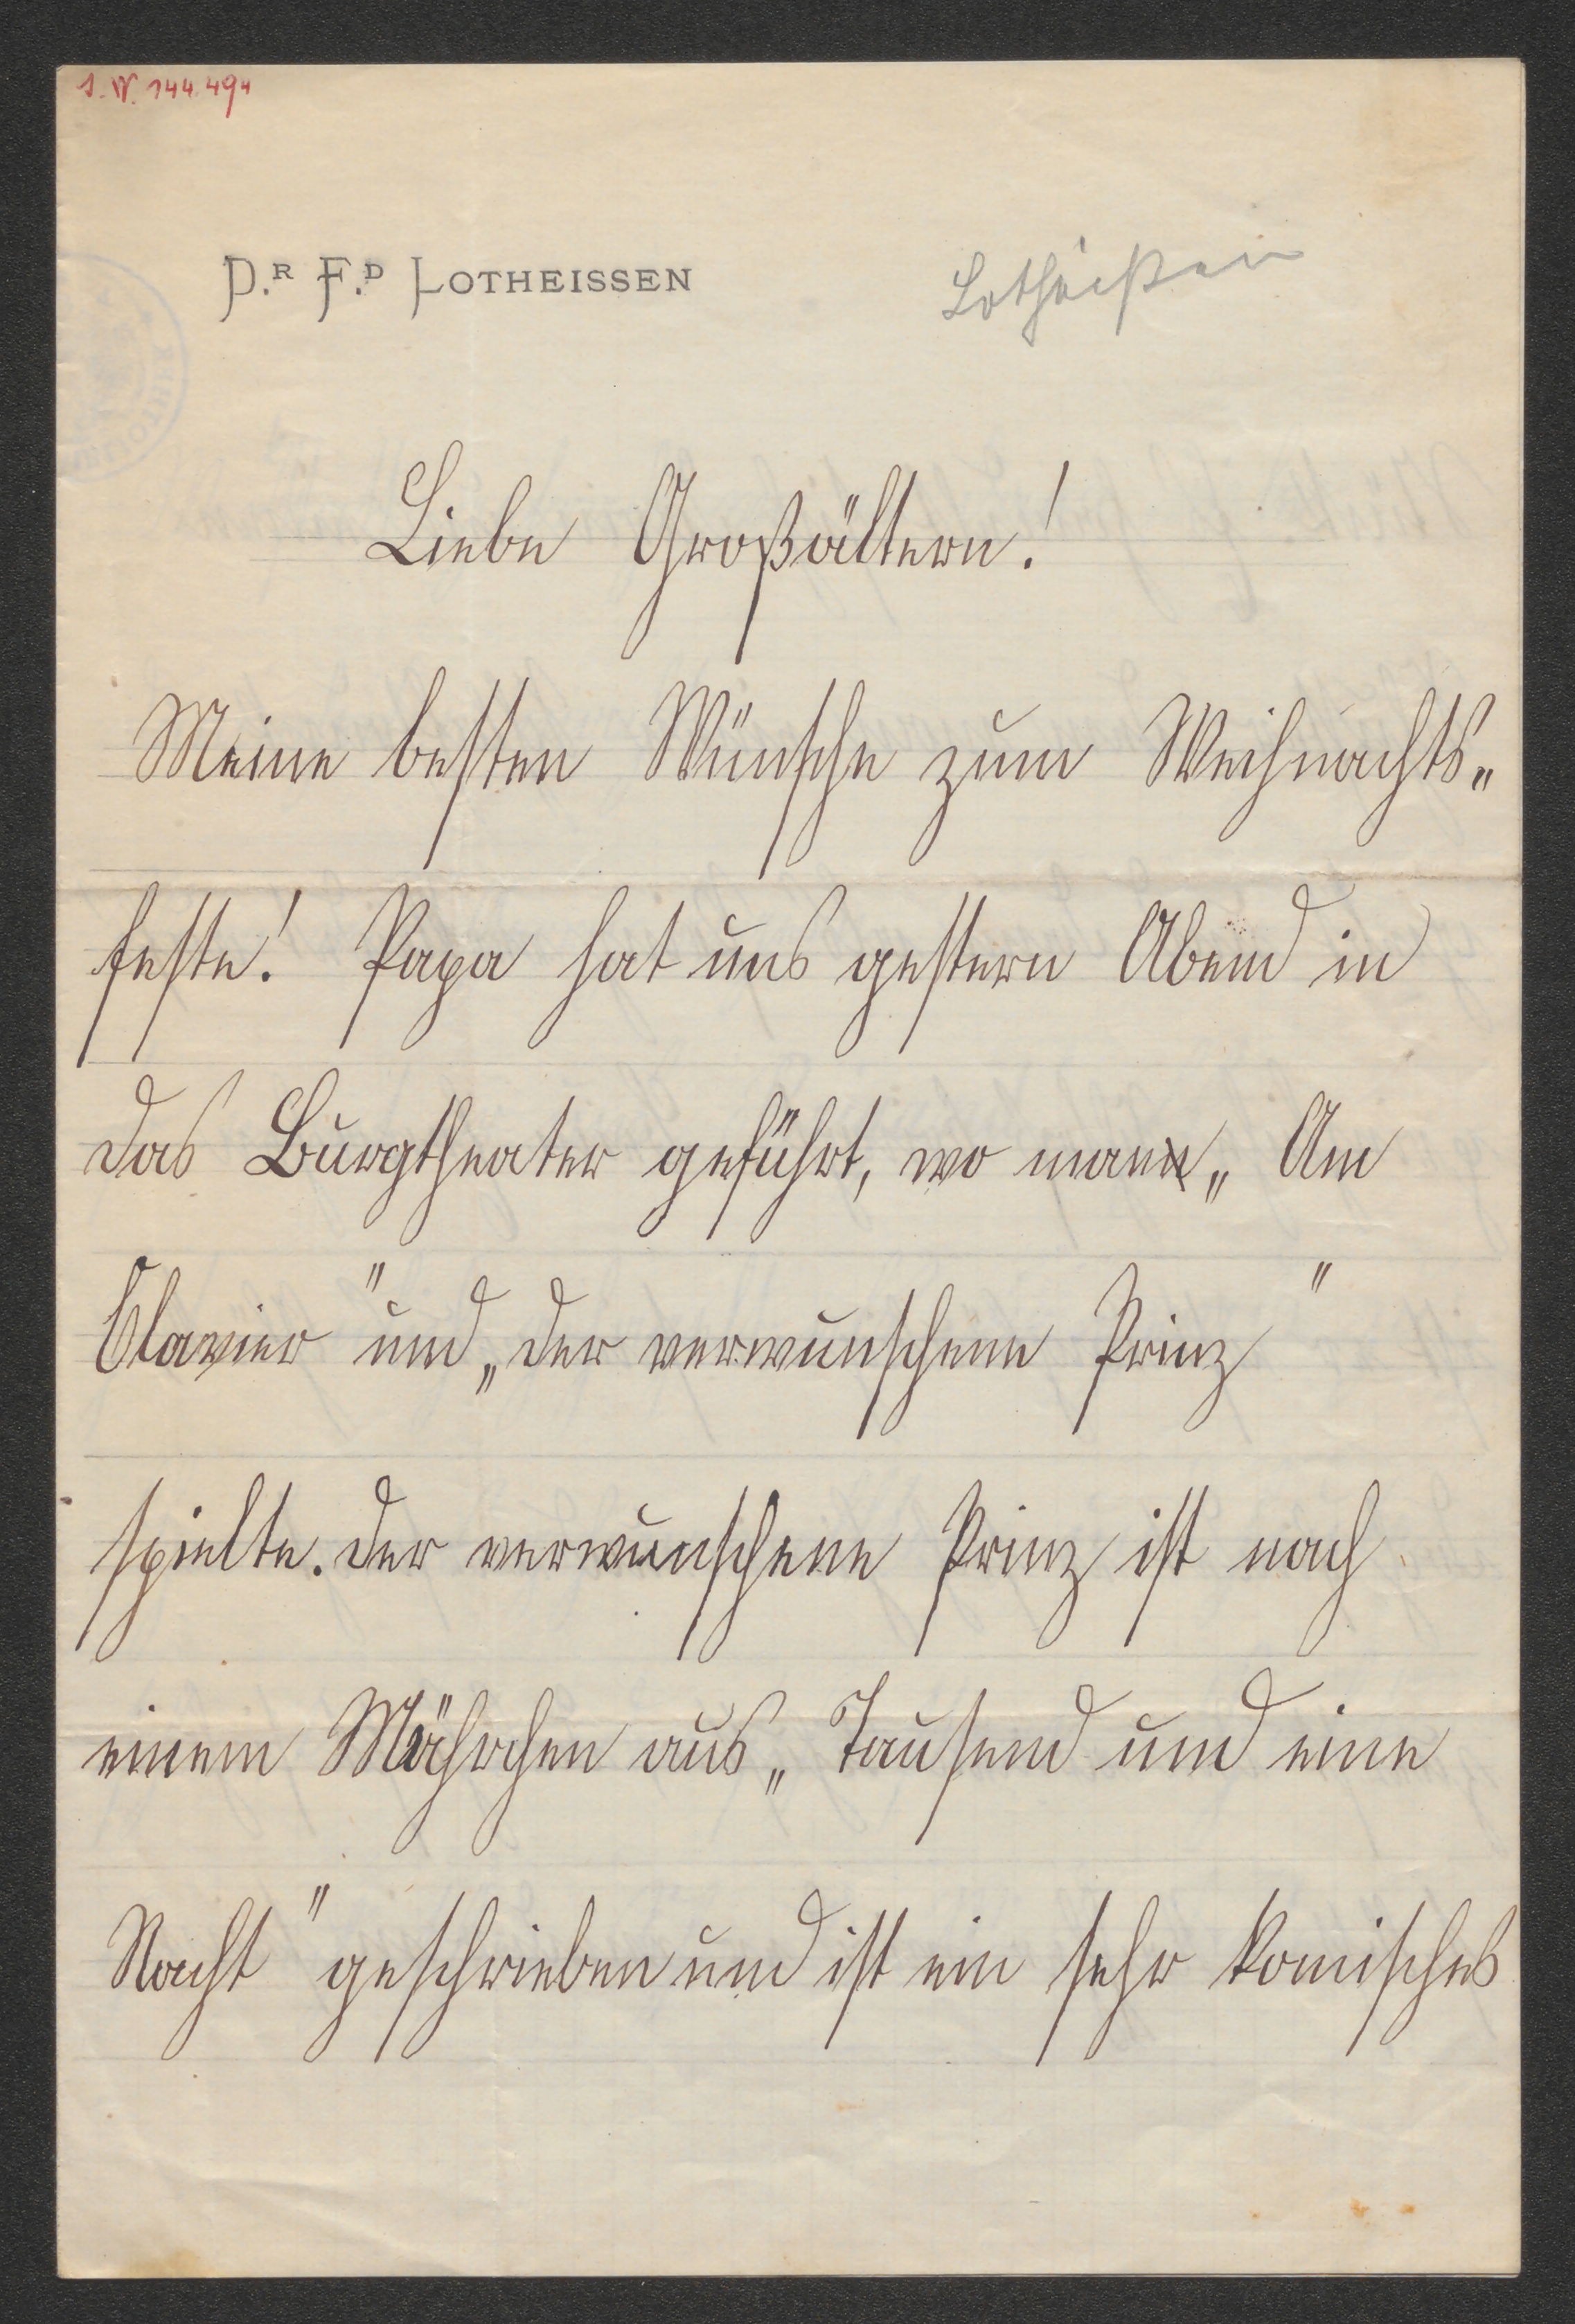 I.N. 144.494
Dr. Fd. LOTHEISSEN
Lotheißen
Liebe Großältern!
Meine besten Wünsche zum Weihnachts„
feste! Papa hat uns gestern Abend in
das Burgtheater geführt, wo man „Am
Clavier" und „der verwunschene Prinz"
spielte. Der verwunschene Prinz ist nach
einem Mährchen aus „Tausend und eine
Nacht" geschrieben und ist ein sehr komisches